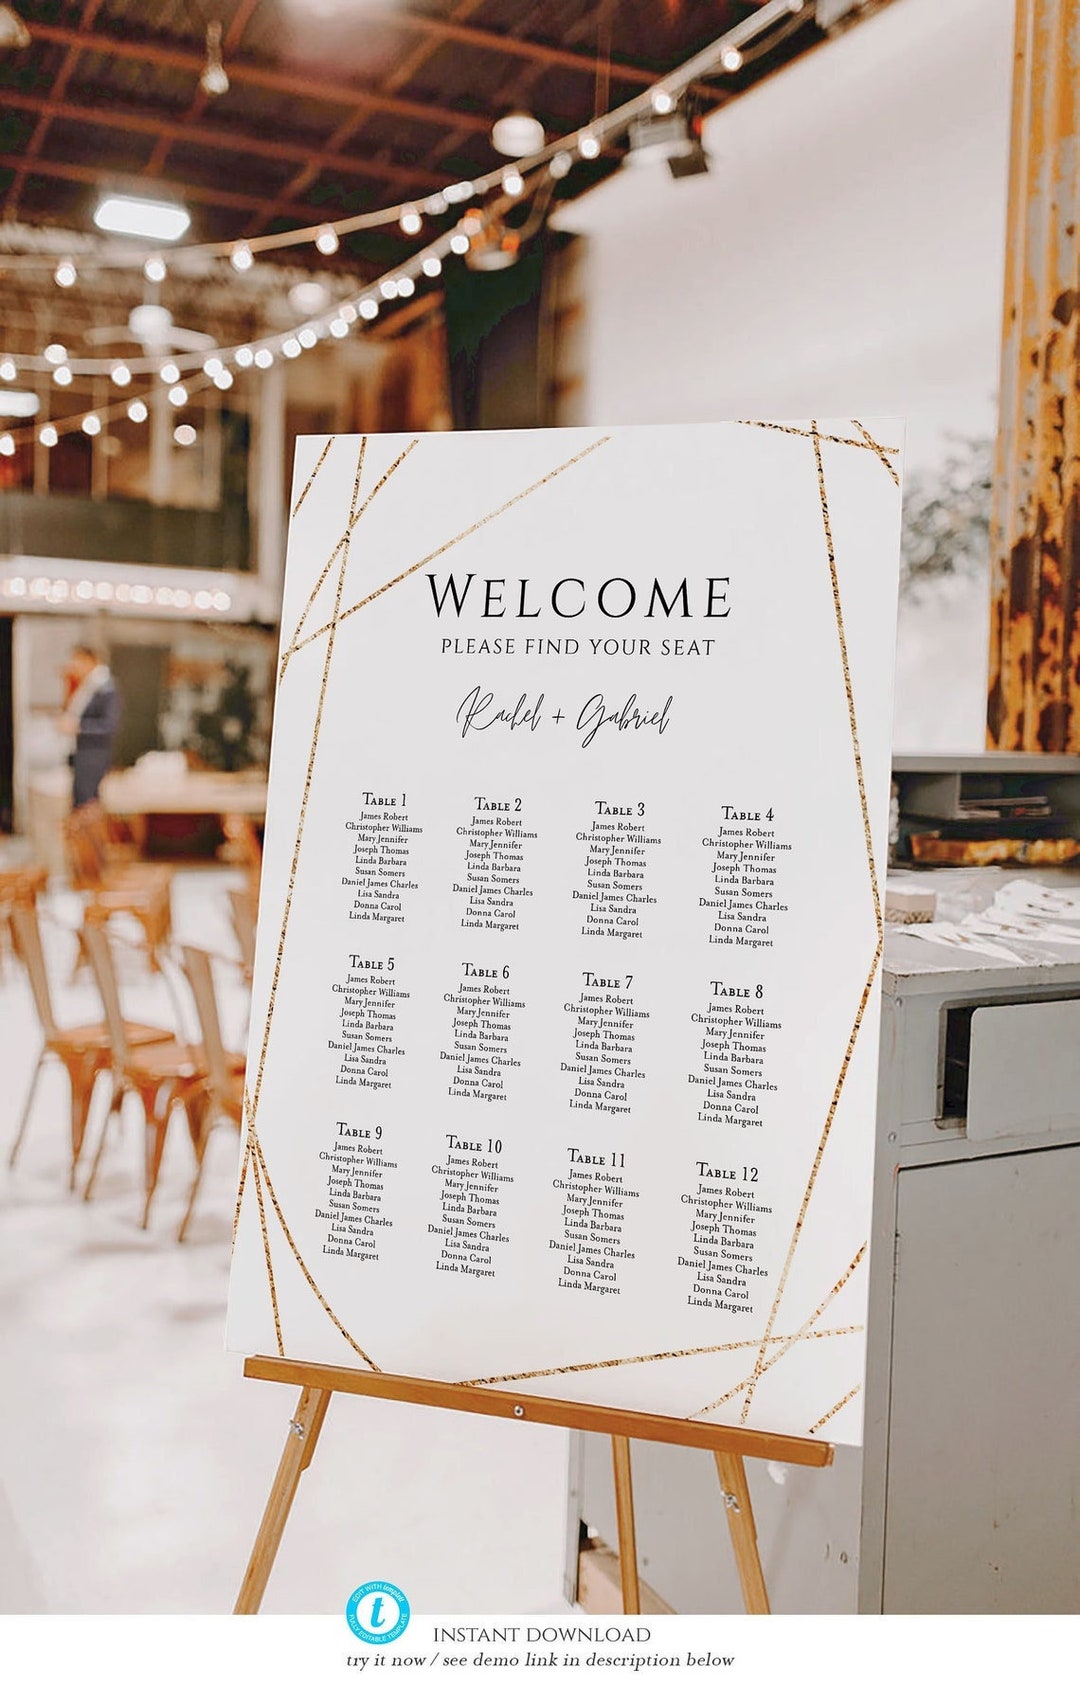 WELCOME
PLEASE FIND YOUR SEAT
Rachel + Gabriel
TABLE 1
James Robert
Christopher Williams
Mary Jennifer
Joseph Thomas
Linda Barbara
Susan Somers
Daniel James Charles
Lisa Sandra
Donna Carol
Linda Margaret
TABLE 2
James Robert
Christopher Williams
Mary Jennifer
Joseph Thomas
Linda Barbara
Susan Somers
Daniel James Charles
Lisa Sandra
Donna Carol
Linda Margaret
TABLE 3
James Robert
Christopher Williams
Mary Jennifer
Joseph Thomas
Linda Barbara
Susan Somers
Daniel James Charles
Lisa Sandra
Donna Carol
Linda Margaret
TABLE 4
James Robert
Christopher Williams
Mary Jennifer
Joseph Thomas
Linda Barbara
Susan Somers
Daniel James Charles
Lisa Sandra
Donna Carol
Linda Margaret
TABLE 5
James Robert
Christopher Williams
Mary Jennifer
Joseph Thomas
Linda Barbara
Susan Somers
Daniel James Charles
Lisa Sandra
Donna Carol
Linda Margaret
TABLE 6
James Robert
Christopher Williams
Mary Jennifer
Joseph Thomas
Linda Barbara
Susan Somers
Daniel James Charles
Lisa Sandra
Donna Carol
Linda Margaret
TABLE 7
James Robert
Christopher Williams
Mary Jennifer
Joseph Thomas
Linda Barbara
Susan Somers
Daniel James Charles
Lisa Sandra
Donna Carol
Linda Margaret
TABLE 8
James Robert
Christopher Williams
Mary Jennifer
Joseph Thomas
Linda Barbara
Susan Somers
Daniel James Charles
Lisa Sandra
Donna Carol
Linda Margaret
TABLE 9
James Robert
Christopher Williams
Mary Jennifer
Joseph Thomas
Linda Barbara
Susan Somers
Daniel James Charles
Lisa Sandra
Donna Carol
Linda Margaret
TABLE 10
James Robert
Christopher Williams
Mary Jennifer
Joseph Thomas
Linda Barbara
Susan Somers
Daniel James Charles
Lisa Sandra
Donna Carol
Linda Margaret
TABLE 11
James Robert
Christopher Williams
Mary Jennifer
Joseph Thomas
Linda Barbara
Susan Somers
Daniel James Charles
Lisa Sandra
Donna Carol
Linda Margaret
TABLE 12
James Robert
Christopher Williams
Mary Jennifer
Joseph Thomas
Linda Barbara
Susan Somers
Daniel James Charles
Lisa Sandra
Donna Carol
Linda Margaret
EDIT WITH templett
t
FULLY EDITABLE TEMPLATE
INSTANT DOWNLOAD
try it now / see demo link in description below